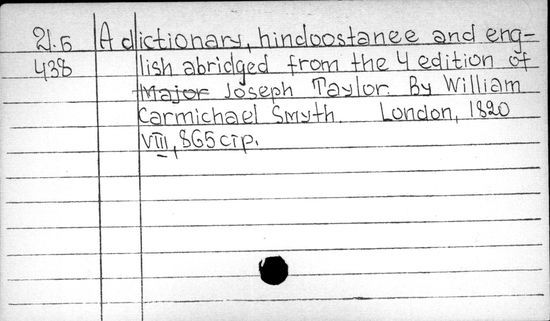 21.б A dictionary, hindoostanee and eng-
438 lish abridged from the 4 edition of
Major Joseph Taylor. By William
Carmichael Smyth. London, 1820
VIII, 865 стр.